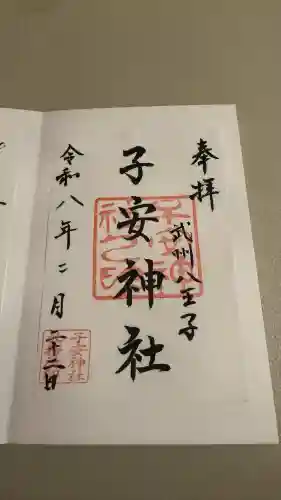 奉拝
武州八王子
子安神社
令和八年二月
二十二日
子安神社